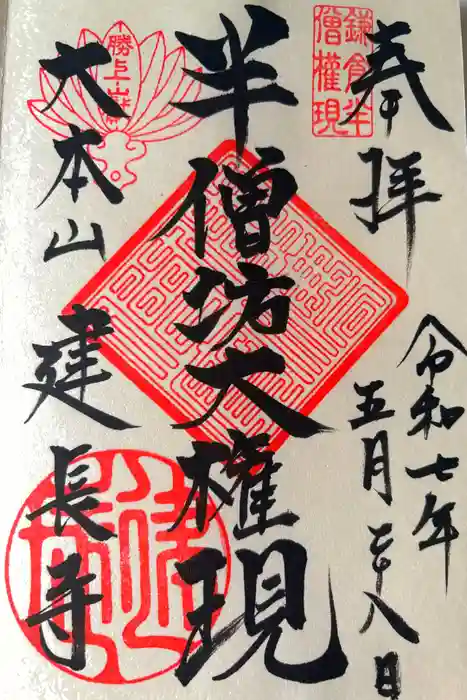 奉拝
令和七年
五月二十八日
鎌倉半
僧権現
半僧坊大権現
勝上山
大本山建長寺